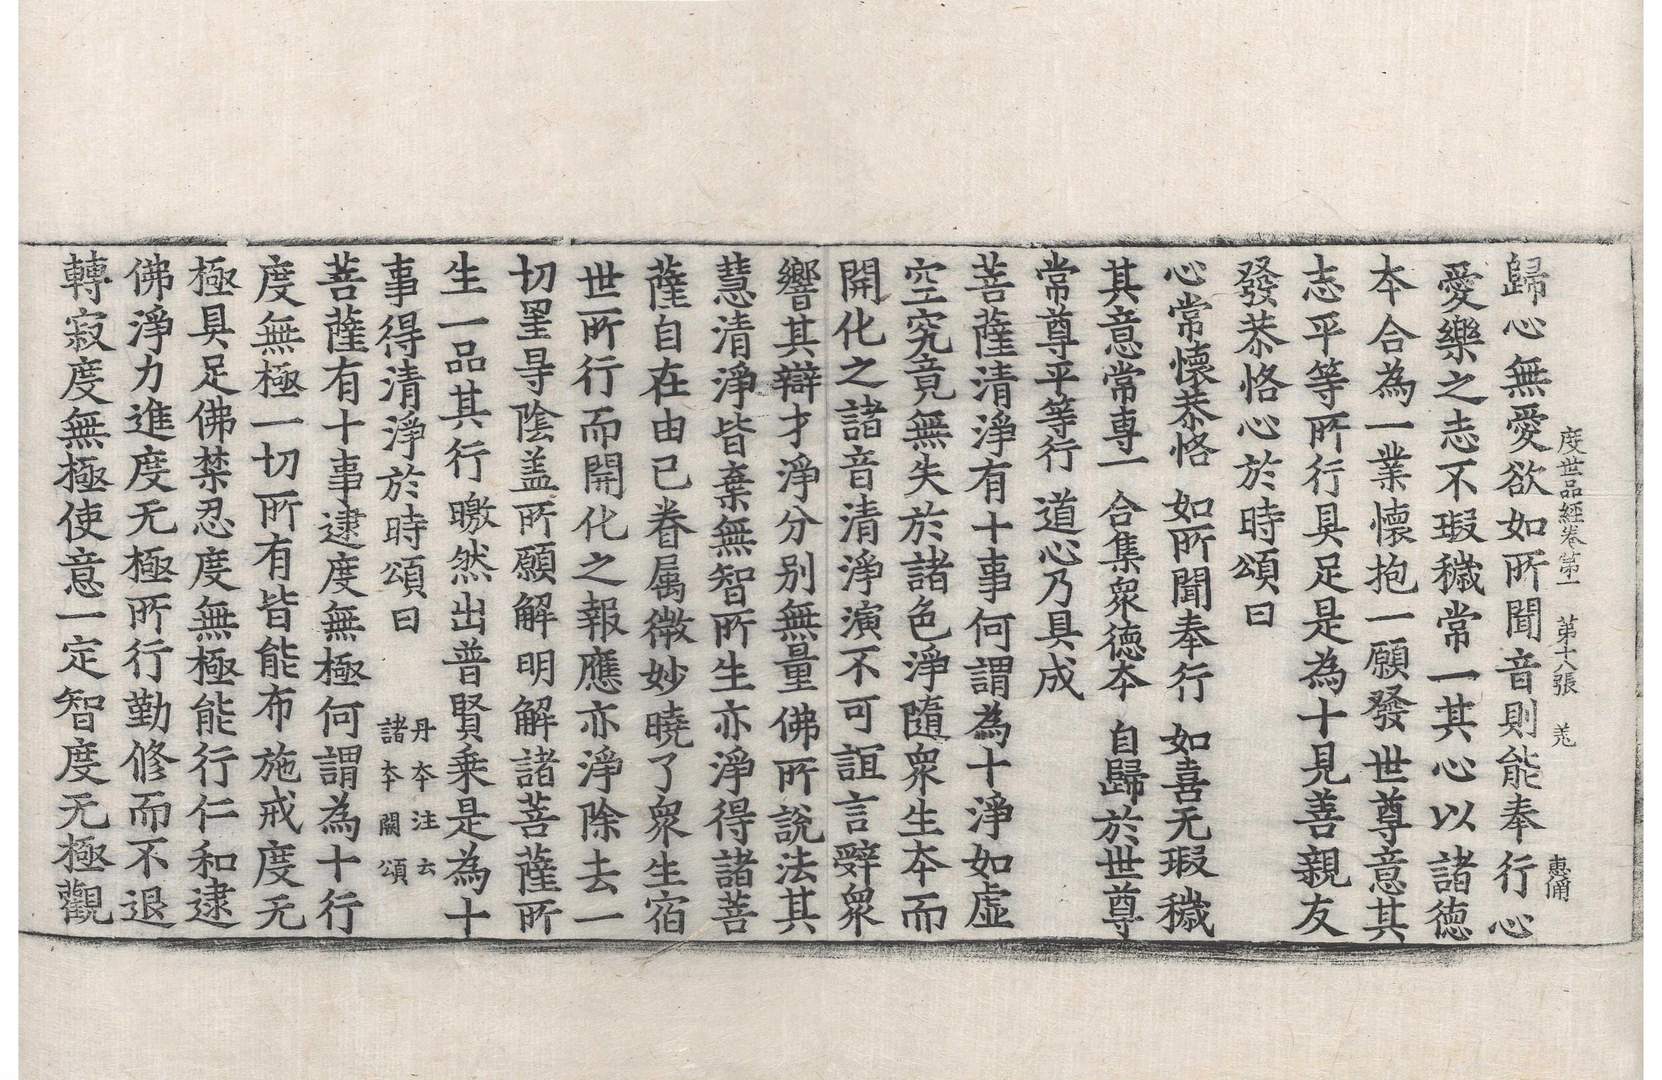 度世品經卷第一 第十八張 羗 惠俑
歸心無愛欲如所聞音則能奉行心
愛樂之志不瑕穢常一其心以諸德
夲合為一業懷抱一願發世尊意其
志平等所行具足是為十見善親友
發恭恪心於時頌曰
心常懷恭恪 如所聞奉行 如喜无瑕穢
其意常專一 合集衆德夲 自歸於世尊
常尊平等行 道心乃具成
菩薩清淨有十事何謂為十淨如虛
空究竟無失於諸色淨隨衆生夲而
開化之諸音清淨演不可誼言辭衆
響其辯才淨分别無量佛所說法其
慧清淨皆棄無智所生亦淨得諸菩
薩自在由已眷属微妙曉了衆生宿
世所行而開化之報應亦淨除去一
切罣㝵陰盖所願解明解諸菩薩所
生一品其行曒然出普賢乗是為十
事得清淨於時頌曰 丹夲注云諸夲闕頌
菩薩有十事逮度無極何謂為十行
度無極一切所有皆能布施戒度无
極具足佛禁忍度無極能行仁和逮
佛淨力進度无極所行勤修而不退
轉寂度無極使意一定智度无極觀